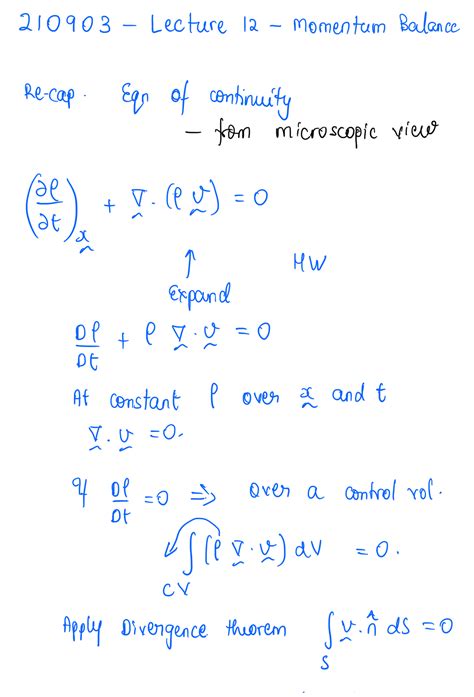 210903 - Lecture 12 - Momentum Balance
Re-cap. Eqn of continuity
- from microscopic view
(∂ρ/∂t)_x + ∇ · (ρ v) = 0
↑ HW
Expand
Dρ/Dt + ρ ∇ · v = 0
At constant ρ over x and t
∇ · v = 0.
If Dρ/Dt = 0 ⇒ over a control vol.
∫_CV (ρ ∇ · v) dV = 0.
Apply Divergence theorem ∫_S v · n̂ dS = 0